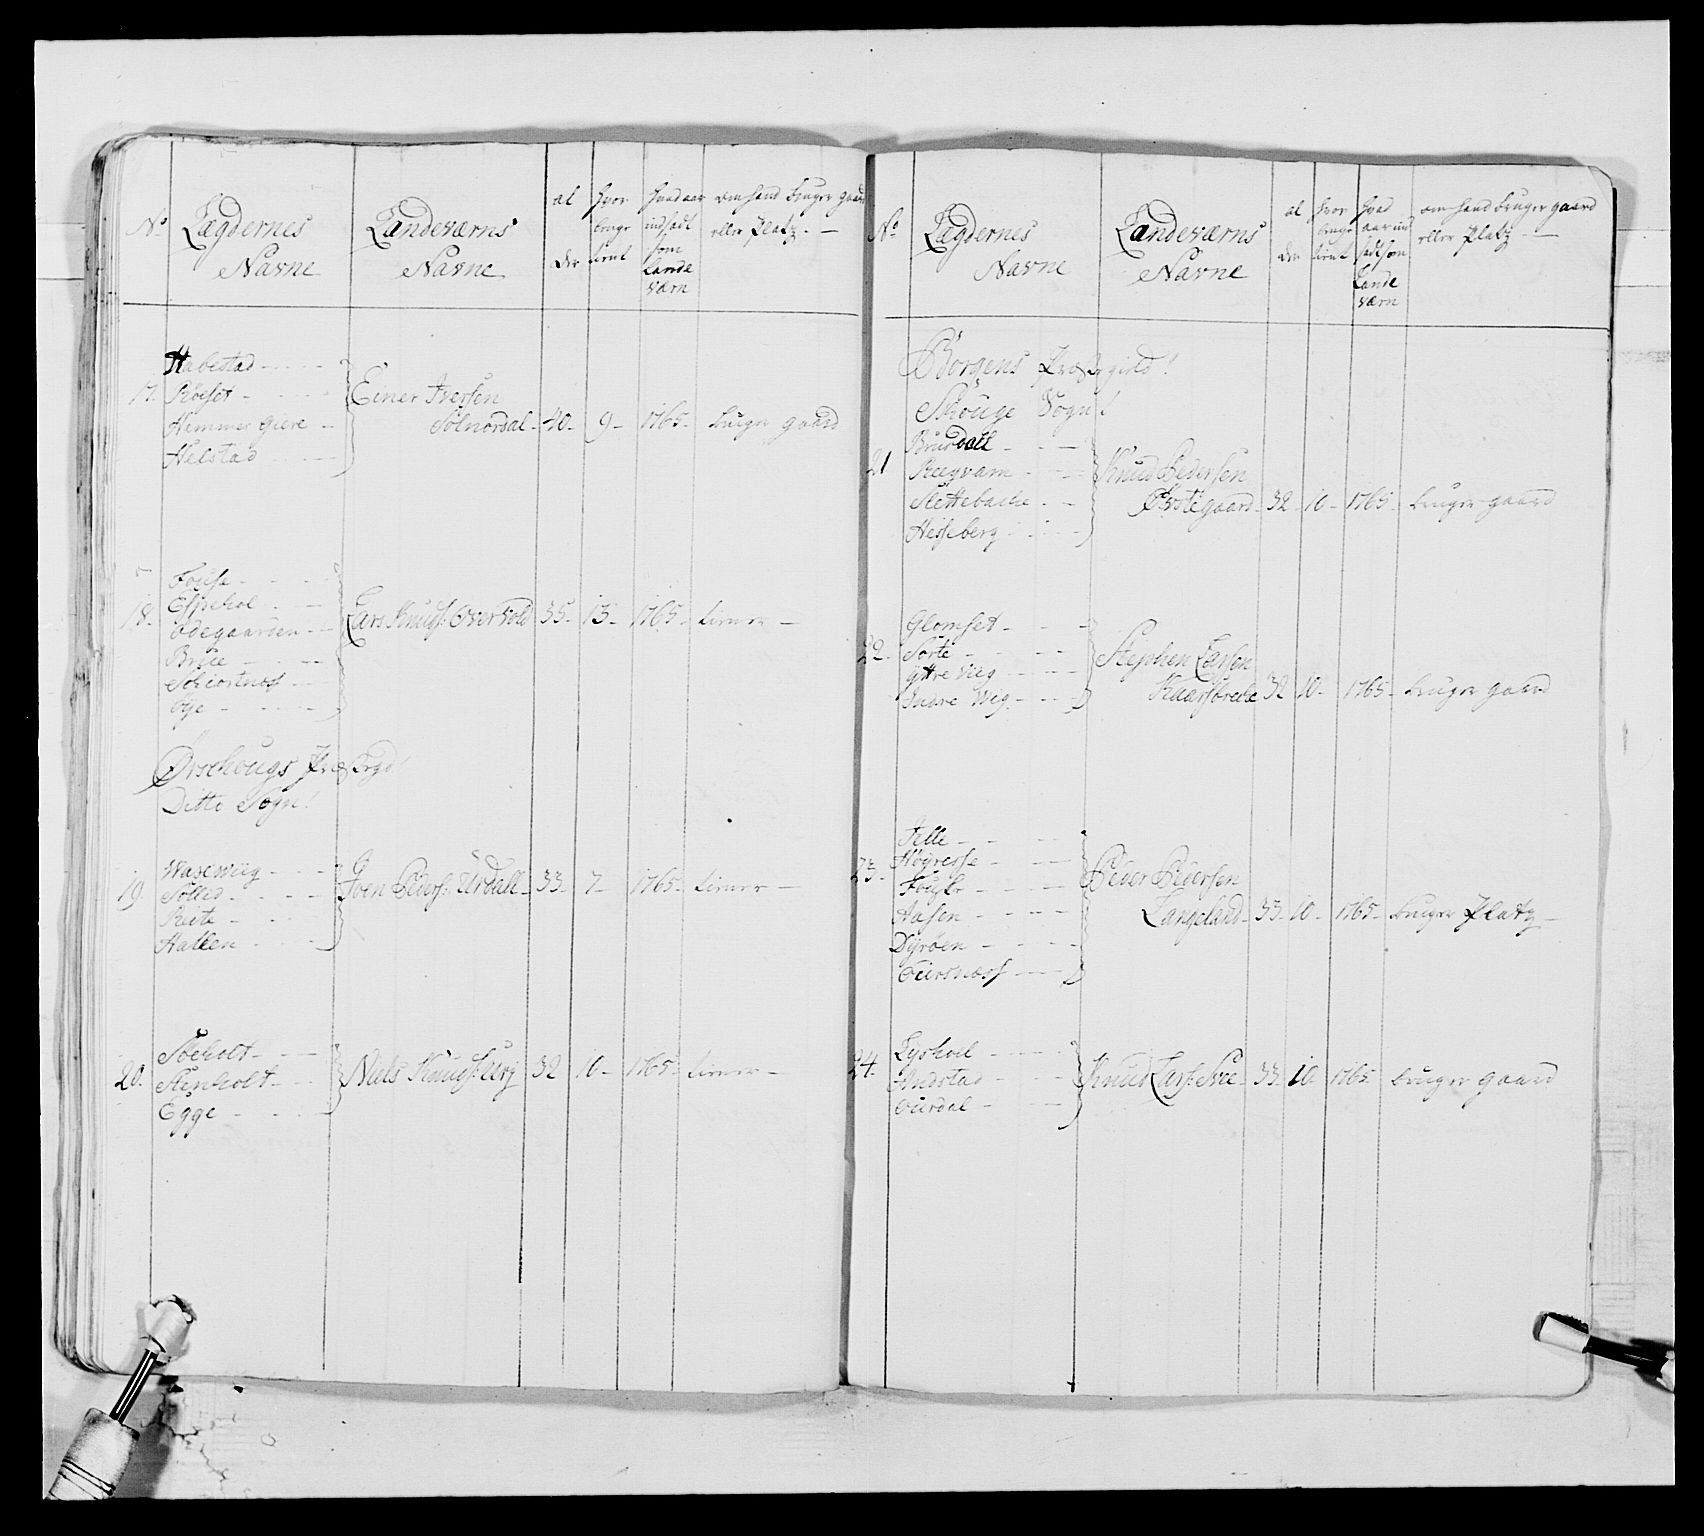 No
Lægdernes
Navne
Landeværns
Navne
al
der
hvor
længe
tient
hvad aar
indsadt
som
Lande
værn
om hand bruger gaard
eller Platz
Habestad
17. Röeset
Hemmer Giere
Helstad
Einer Iversen
Solnordal 40 9 1765 bruger gaard
Fouse
Espehol
18. Ödegaarden
Brue
Schiortnes
Øye
Lars Knuds: Overvold 35 13 1765 tiener
Ørschougs Præstegd!
Ditto Sogn!
Waseviig
19. Sollid
Reite
Hallen
Joen Peders: Urdall 33 7 1765 tiener
Söeholt
20. Stenholt
Egge
Niels Knuds: Urj 32 10 1765 tiener
No
Lægdernes
Navne
Landeværns
Navne
al
der
hvor
længe
tient
hvad
aar ind
sadt som
Lande
værn
om hand bruger gaard
eller Platz
Borgens Præstegield!
Skouge Sogn!
Brusdall
21 Rægvam
Slettebache
Hesseberg
Knud Pedersen
Østegaard 32 10 1765 bruger gaard
Glomset
22. Sorte
Ytre Weg
Indre Weg
Stephen Larsen
Kaarsbrecke 32 10 1765 bruger gaard
Felle
23. Högresse
Aasen
Dyröen
Oursness
Peder Pedersen
Langeland 33 10 1765 bruger Platz
Lyshoel
24. Andstad
Ourdal
Knud Lars: Svee 33 10 1765 bruger gaard